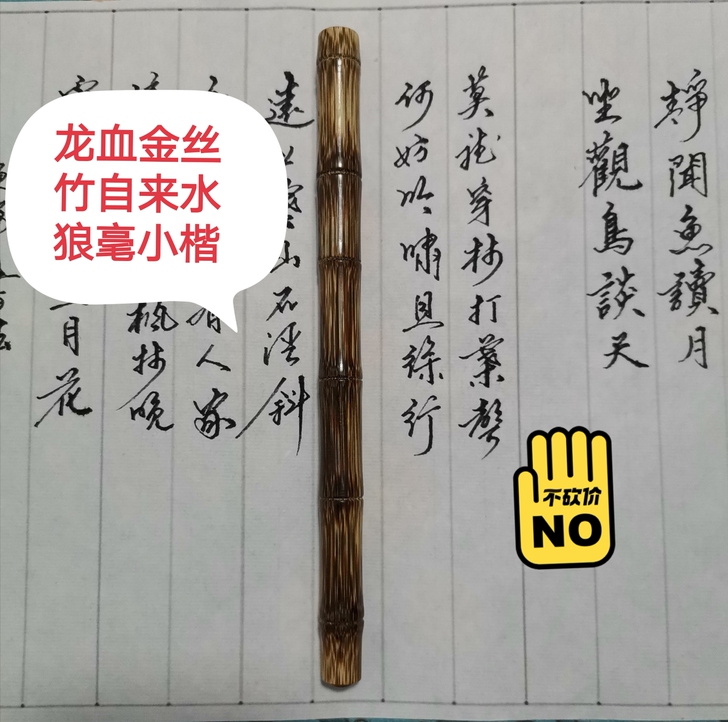 龙血金丝
竹自来水
狼毫小楷
静聞魚讀月
坐觀鳥談天
莫聽穿林打葉聲
何妨吟嘯且徐行
遠上寒山石徑斜
有人家
楓林晚
月花
不砍价
NO